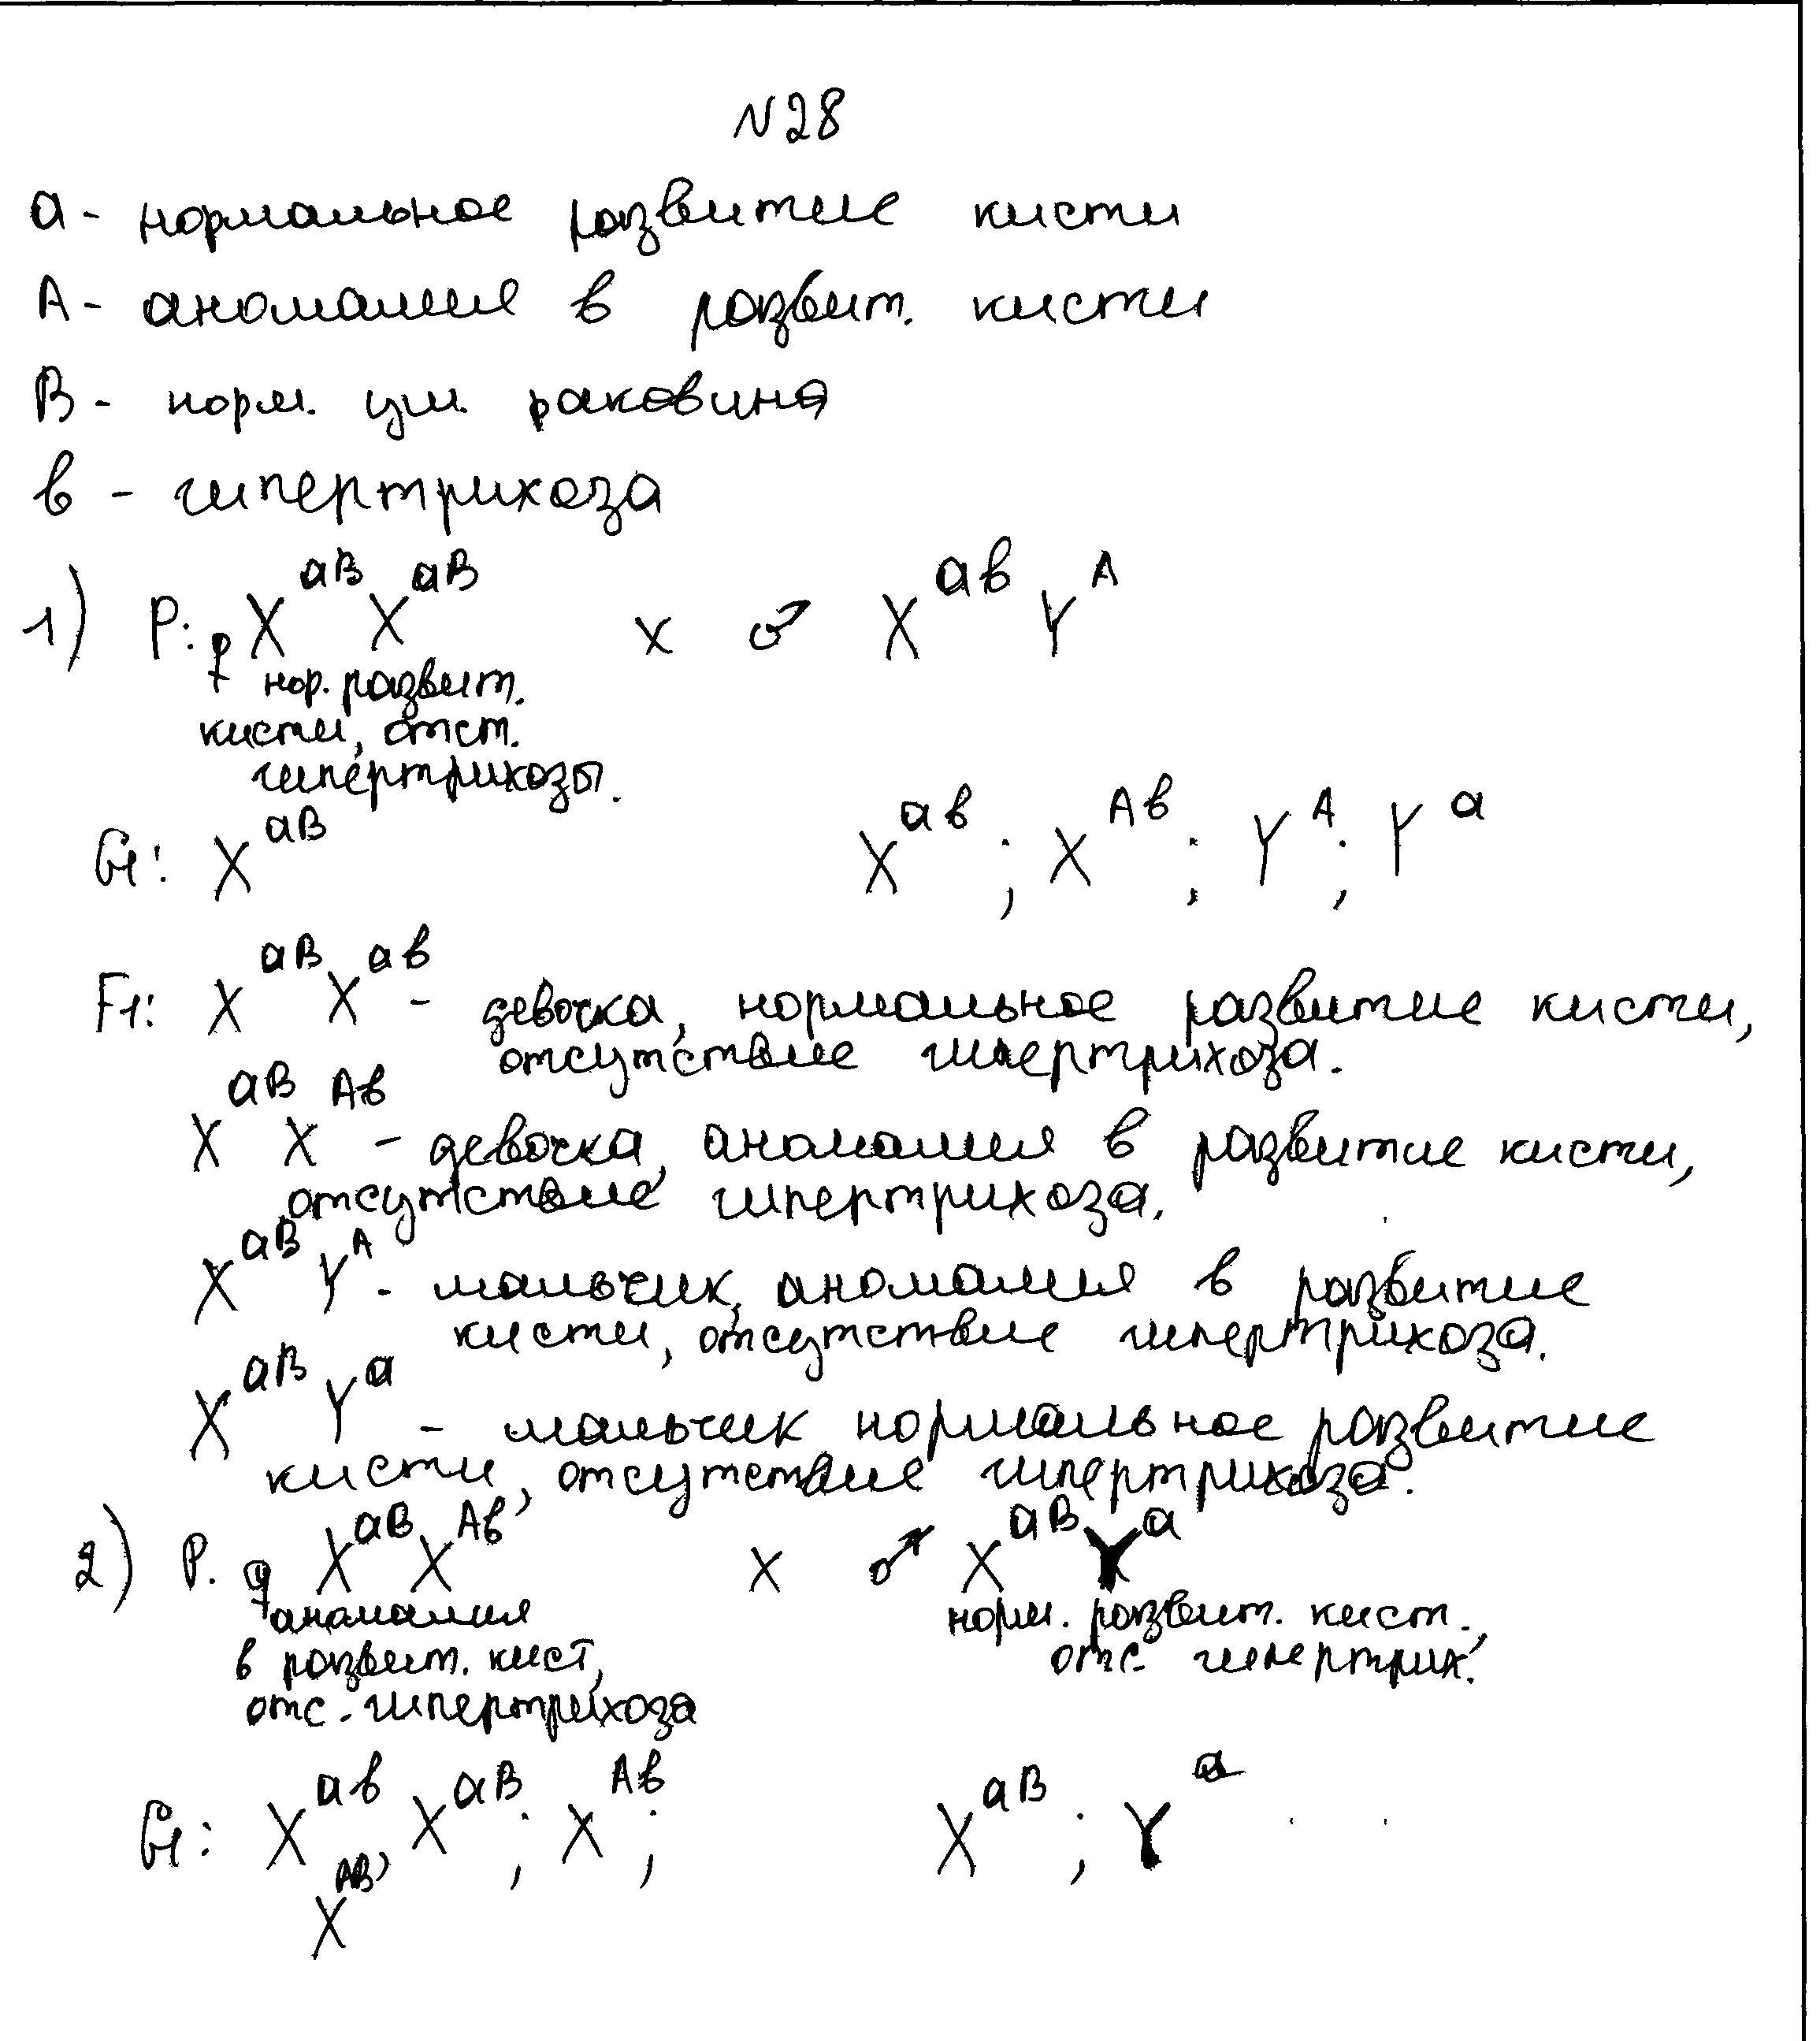 N28
а - нормальное развитие кисти
А - аномалия в развит. кисти
В - норм. уш. раковина
в - гипертрихоза
1) Р: ♀ X^aB X^aB x ♂ X^aв Y^A
нор. развит.
кисти, отст.
гипертрихозы.
G: X^aB X^aв ; X^Aв ; Y^A ; Y^a
F1: X^aB X^aв - девочка, нормальное развитие кисти,
отсутствие гипертрихоза.
X^aB X^Aв - девочка, аномалия в развитие кисти,
отсутствие гипертрихоза.
X^aB Y^A - мальчик, аномалия в развитие
кисти, отсутствие гипертрихоза.
X^aB Y^a - мальчик нормальное развитие
кисти, отсутствие гипертрихоза.
2) Р. ♀ X^aB X^Aв x ♂ X^aB Y^a
аномалия норм. развит. кист.,
в развит. кист, отс. гипертрих.
отс. гипертрихоза
G: X^aв , X^aB ; X^Aв ; X^aB ; Y^a
X^AB